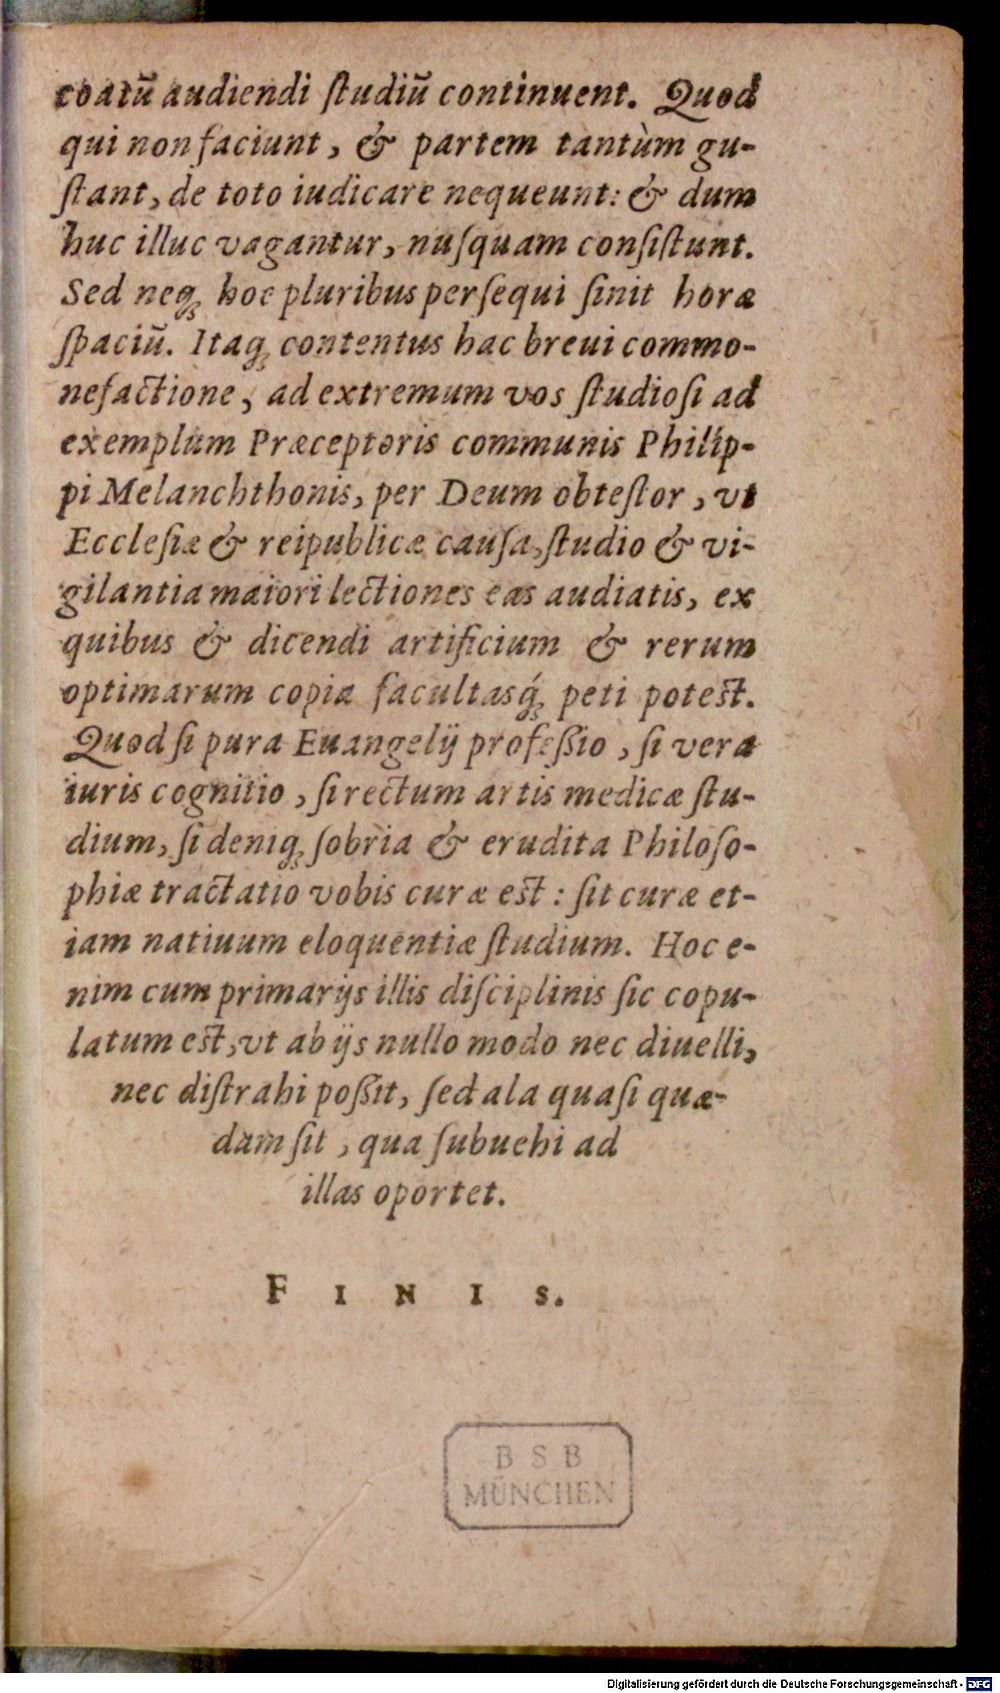 coatũ audiendi ſtudiũ continuent. Quod
qui non faciunt, & partem tantùm gu-
ſtant, de toto iudicare nequeunt: & dum
huc illuc vagantur, nuſquam conſiſtunt.
Sed neq; hoc pluribus perſequi ſinit horæ
ſpaciũ. Itaq; contentus hac breui commo-
nefactione, ad extremum vos ſtudioſi ad
exemplum Præceptoris communis Philip-
pi Melanchthonis, per Deum obteſtor, vt
Eccleſiæ & reipublicæ cauſa, ſtudio & vi-
gilantia maiori lectiones eas audiatis, ex
quibus & dicendi artificium & rerum
optimarum copia facultasq́; peti poteſt.
Quod ſi pura Euangelij profeßio, ſi vera
iuris cognitio, ſi rectum artis medicæ ſtu-
dium, ſi deniq; ſobria & erudita Philoſo-
phiæ tractatio vobis curæ eſt: ſit curæ et-
iam natiuum eloquentiæ ſtudium. Hoc e-
nim cum primarijs illis diſciplinis ſic copu-
latum eſt, vt ab ijs nullo modo nec diuelli,
nec diſtrahi poßit, ſed ala quaſi quæ-
dam ſit, qua ſubuehi ad
illas oportet.
FINIS.
BSB
MÜNCHEN
Digitalisierung gefördert durch die Deutsche Forschungsgemeinschaft - DFG